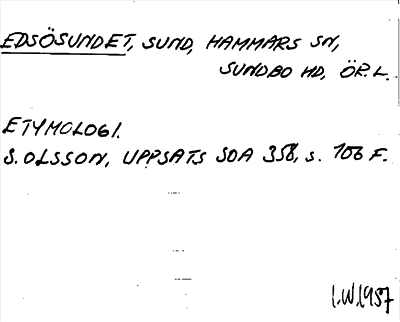 EDSÖSUNDET, SUND, HAMMARS SN,
SUNDBO HD, ÖR.L.
ETYMOLOGI.
S. OLSSON, UPPSATS SOA 358, s. 106 F.
I.W.1957